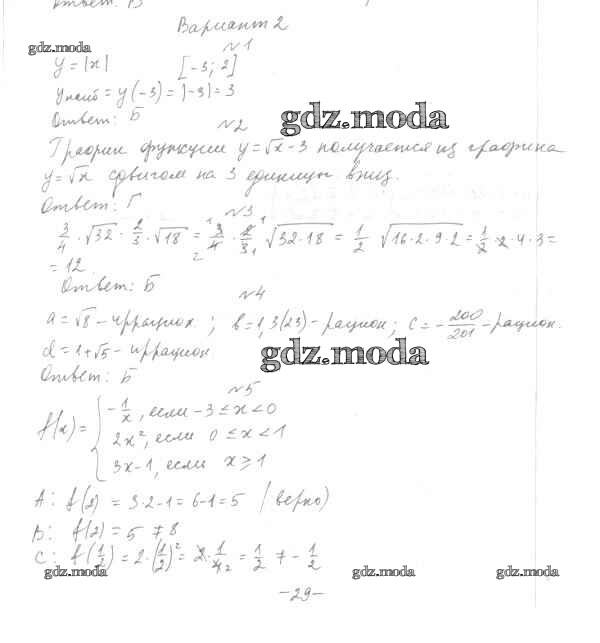 Ответ: В
Вариант 2
gdz.moda
№1
y = |x| [-3; 2]
yнаиб = y(-3) = |-3| = 3
Ответ: Б
gdz.moda
№2
График функции y = √x - 3 получается из графика
y = √x сдвигом на 3 единицы вниз.
Ответ: Г
№3
3/4 · √32 · 2/3 · √18 = 3/4 · 2/3 √(32·18) = 1/2 √(16·2·9·2) = 1/2 · 2·4·3 =
= 12.
Ответ: Б
№4
a = √8 - иррацион; b = 1,3(23) - рацион; c = -200/201 - рацион.
d = 1+√5 - иррацион
gdz.moda
Ответ: Б
№5
f(x) = { -1/x, если -3 ≤ x < 0
2x², если 0 ≤ x < 1
3x-1, если x ≥ 1
A: f(2) = 3·2-1 = 6-1 = 5 (верно)
B: f(2) = 5 ≠ 8
C: f(1/2) = 2·(1/2)² = 2·1/4 = 1/2 ≠ -1/2
gdz.moda gdz.moda gdz.moda
-29-